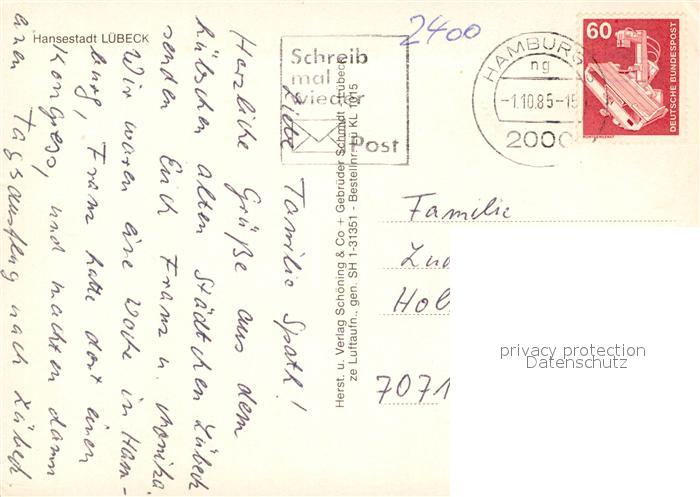 Hansestadt LÜBECK
2400
Schreib
mal
wieder
Post
HAMBURG
ng
-1.10.85-15
2000
60
DEUTSCHE BUNDESPOST
Liebe Familie Spath!
Herzliche Grüße aus dem
hübschen alten Städtchen Lübeck
senden Euch Franz u. Monika.
Wir waren eine Woche in Ham-
burg, Franz hatte dort einen
Kongress, und machten dann
einen Tagsausflug nach Lübeck.
Herst. u. Verlag Schöning & Co + Gebrüder Schmidt, Lübeck
ze Luftaufn., gen. SH 1-31351 - Bestellnr. Lu KL 1015
Familie
Hol
7071
privacy protection
Datenschutz